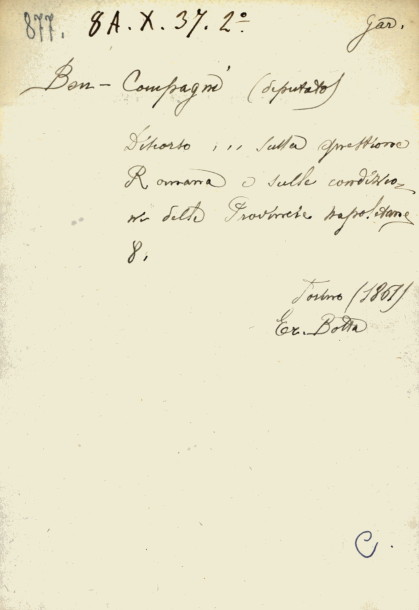 877. 8A.X.37.2º Gar.
Bon-Compagni (deputato)
Discorso ... sulla questione
Romana e sulle condizio-
ni delle Provincie napoletane
8,
Torino (1861)
Er. Botta
C.